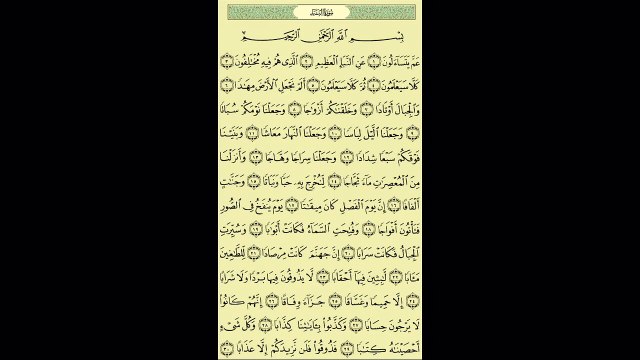 سورة النبإ
بِسْمِ اللَّهِ الرَّحْمَٰنِ الرَّحِيمِ
عَمَّ يَتَسَاءَلُونَ ١ عَنِ النَّبَإِ الْعَظِيمِ ٢ الَّذِي هُمْ فِيهِ مُخْتَلِفُونَ ٣
كَلَّا سَيَعْلَمُونَ ٤ ثُمَّ كَلَّا سَيَعْلَمُونَ ٥ أَلَمْ نَجْعَلِ الْأَرْضَ مِهَادًا ٦
وَالْجِبَالَ أَوْتَادًا ٧ وَخَلَقْنَاكُمْ أَزْوَاجًا ٨ وَجَعَلْنَا نَوْمَكُمْ سُبَاتًا
٩ وَجَعَلْنَا اللَّيْلَ لِبَاسًا ١٠ وَجَعَلْنَا النَّهَارَ مَعَاشًا ١١ وَبَنَيْنَا
فَوْقَكُمْ سَبْعًا شِدَادًا ١٢ وَجَعَلْنَا سِرَاجًا وَهَّاجًا ١٣ وَأَنزَلْنَا
مِنَ الْمُعْصِرَاتِ مَاءً ثَجَّاجًا ١٤ لِنُخْرِجَ بِهِ حَبًّا وَنَبَاتًا ١٥ وَجَنَّاتٍ
أَلْفَافًا ١٦ إِنَّ يَوْمَ الْفَصْلِ كَانَ مِيقَاتًا ١٧ يَوْمَ يُنفَخُ فِي الصُّورِ
فَتَأْتُونَ أَفْوَاجًا ١٨ وَفُتِحَتِ السَّمَاءُ فَكَانَتْ أَبْوَابًا ١٩ وَسُيِّرَتِ
الْجِبَالُ فَكَانَتْ سَرَابًا ٢٠ إِنَّ جَهَنَّمَ كَانَتْ مِرْصَادًا ٢١ لِلطَّاغِينَ
مَآبًا ٢٢ لَابِثِينَ فِيهَا أَحْقَابًا ٢٣ لَا يَذُوقُونَ فِيهَا بَرْدًا وَلَا شَرَابًا
٢٤ إِلَّا حَمِيمًا وَغَسَّاقًا ٢٥ جَزَاءً وِفَاقًا ٢٦ إِنَّهُمْ كَانُوا
لَا يَرْجُونَ حِسَابًا ٢٧ وَكَذَّبُوا بِآيَاتِنَا كِذَّابًا ٢٨ وَكُلَّ شَيْءٍ
أَحْصَيْنَاهُ كِتَابًا ٢٩ فَذُوقُوا فَلَن نَّزِيدَكُمْ إِلَّا عَذَابًا ٣٠